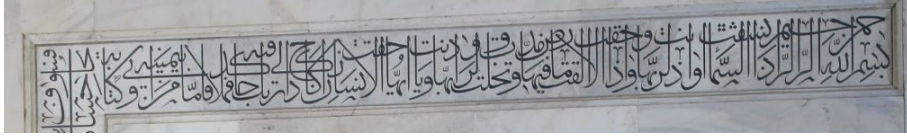 بسم الله الرحمن الرحيم إذا السماء انشقت وأذنت لربها وحقت وإذا الأرض مدت وألقت ما فيها وتخلت وأذنت لربها وحقت يا أيها الإنسان إنك كادح إلى ربك كدحا فملاقيه فأما من أوتي كتابه بيمينه
فسوف يحاسب